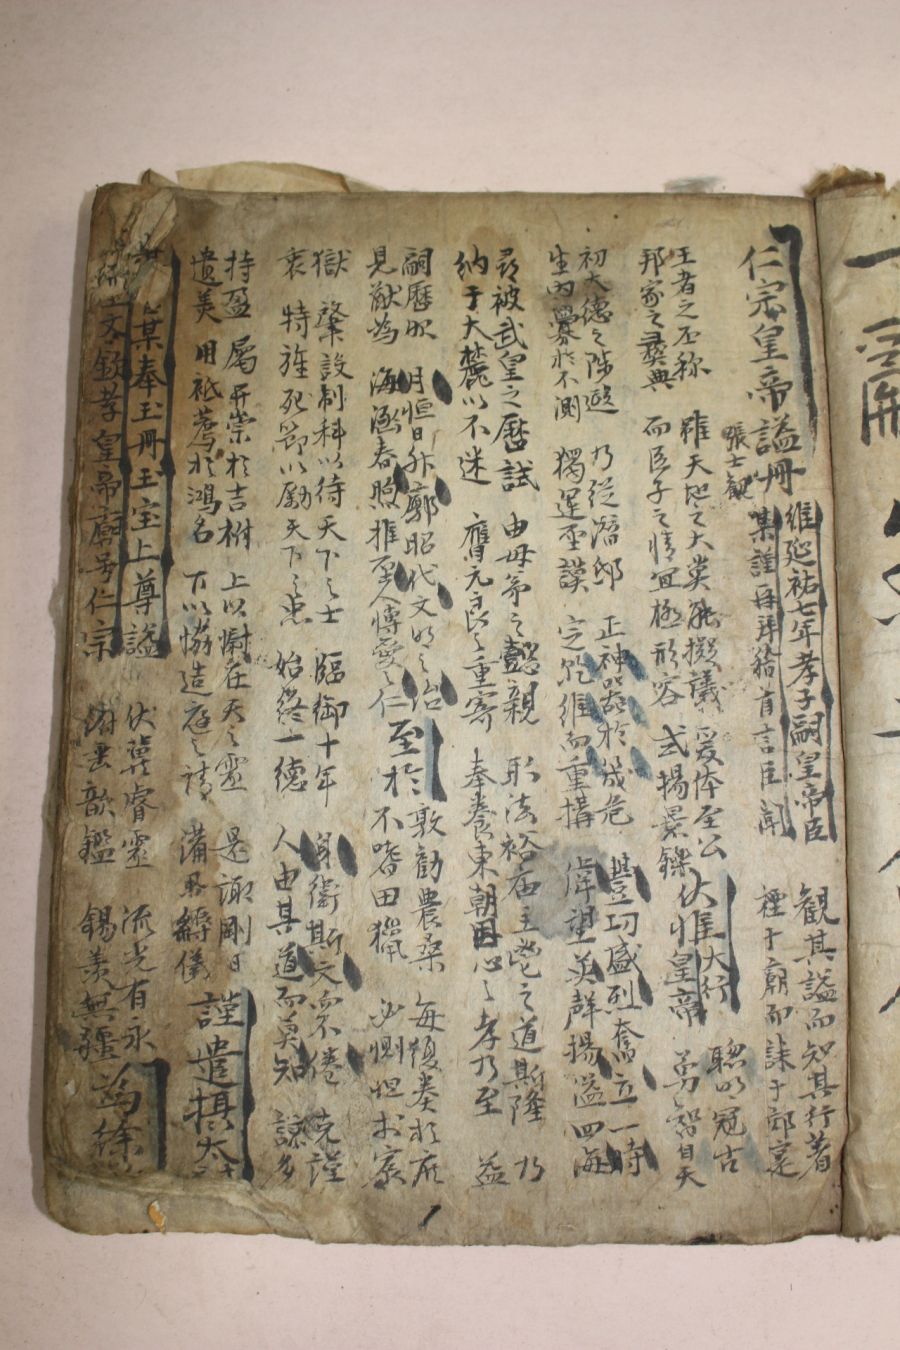 仁宗皇帝謚冊
張士觀
維延祐七年孝子嗣皇帝臣
某謹再拜稽首言臣聞
觀其謚而知其行著
於王者之丕称
稱于廟而誄于郊寔
邦家之彛典
雖天地之大莫能擬議 爰体至公
而臣子之情宜極形容 式揚景鑠
伏惟大行
皇帝
聡明冠古
勇智自天
初大德之陟遐 乃從潛邸 正神器於幾危 豊功盛烈奮立一時
生內釁於不測 獨運丕謨 定乾維而重搆 偉望英聲揚溢四海
尋被武皇之曆試 由母弟之懿親 形法裕后主鬯之道斯隆 乃
納于大麓以不迷 膺元良之重寄 奉養東朝因心之孝乃至 益
嗣曆服 月恒日升廓昭代文明之治 敦勸農桑 每頻奏於
見猷爲 海涵春煦推至人博愛之仁 至於 不嗜田獵 必惻怛於
獄 肇設制科以待天下之士 臨御十年 身衛斯文而不倦 克謹
衷 特旌死節以勵天下之忠 始終一德 人由其道而莫知 謙多
持盈 屬升崇於吉祔 上以慰在天之靈 是諏剛日
遺美 用祗薦於鴻名 下以協造庭之請 備舉縟儀
謹遣攝太
某奉玉冊玉宝上尊謚
文欽孝皇帝廟号仁宗
伏冀睿靈 流光有永
俯垂歆鑑 錫羨無疆